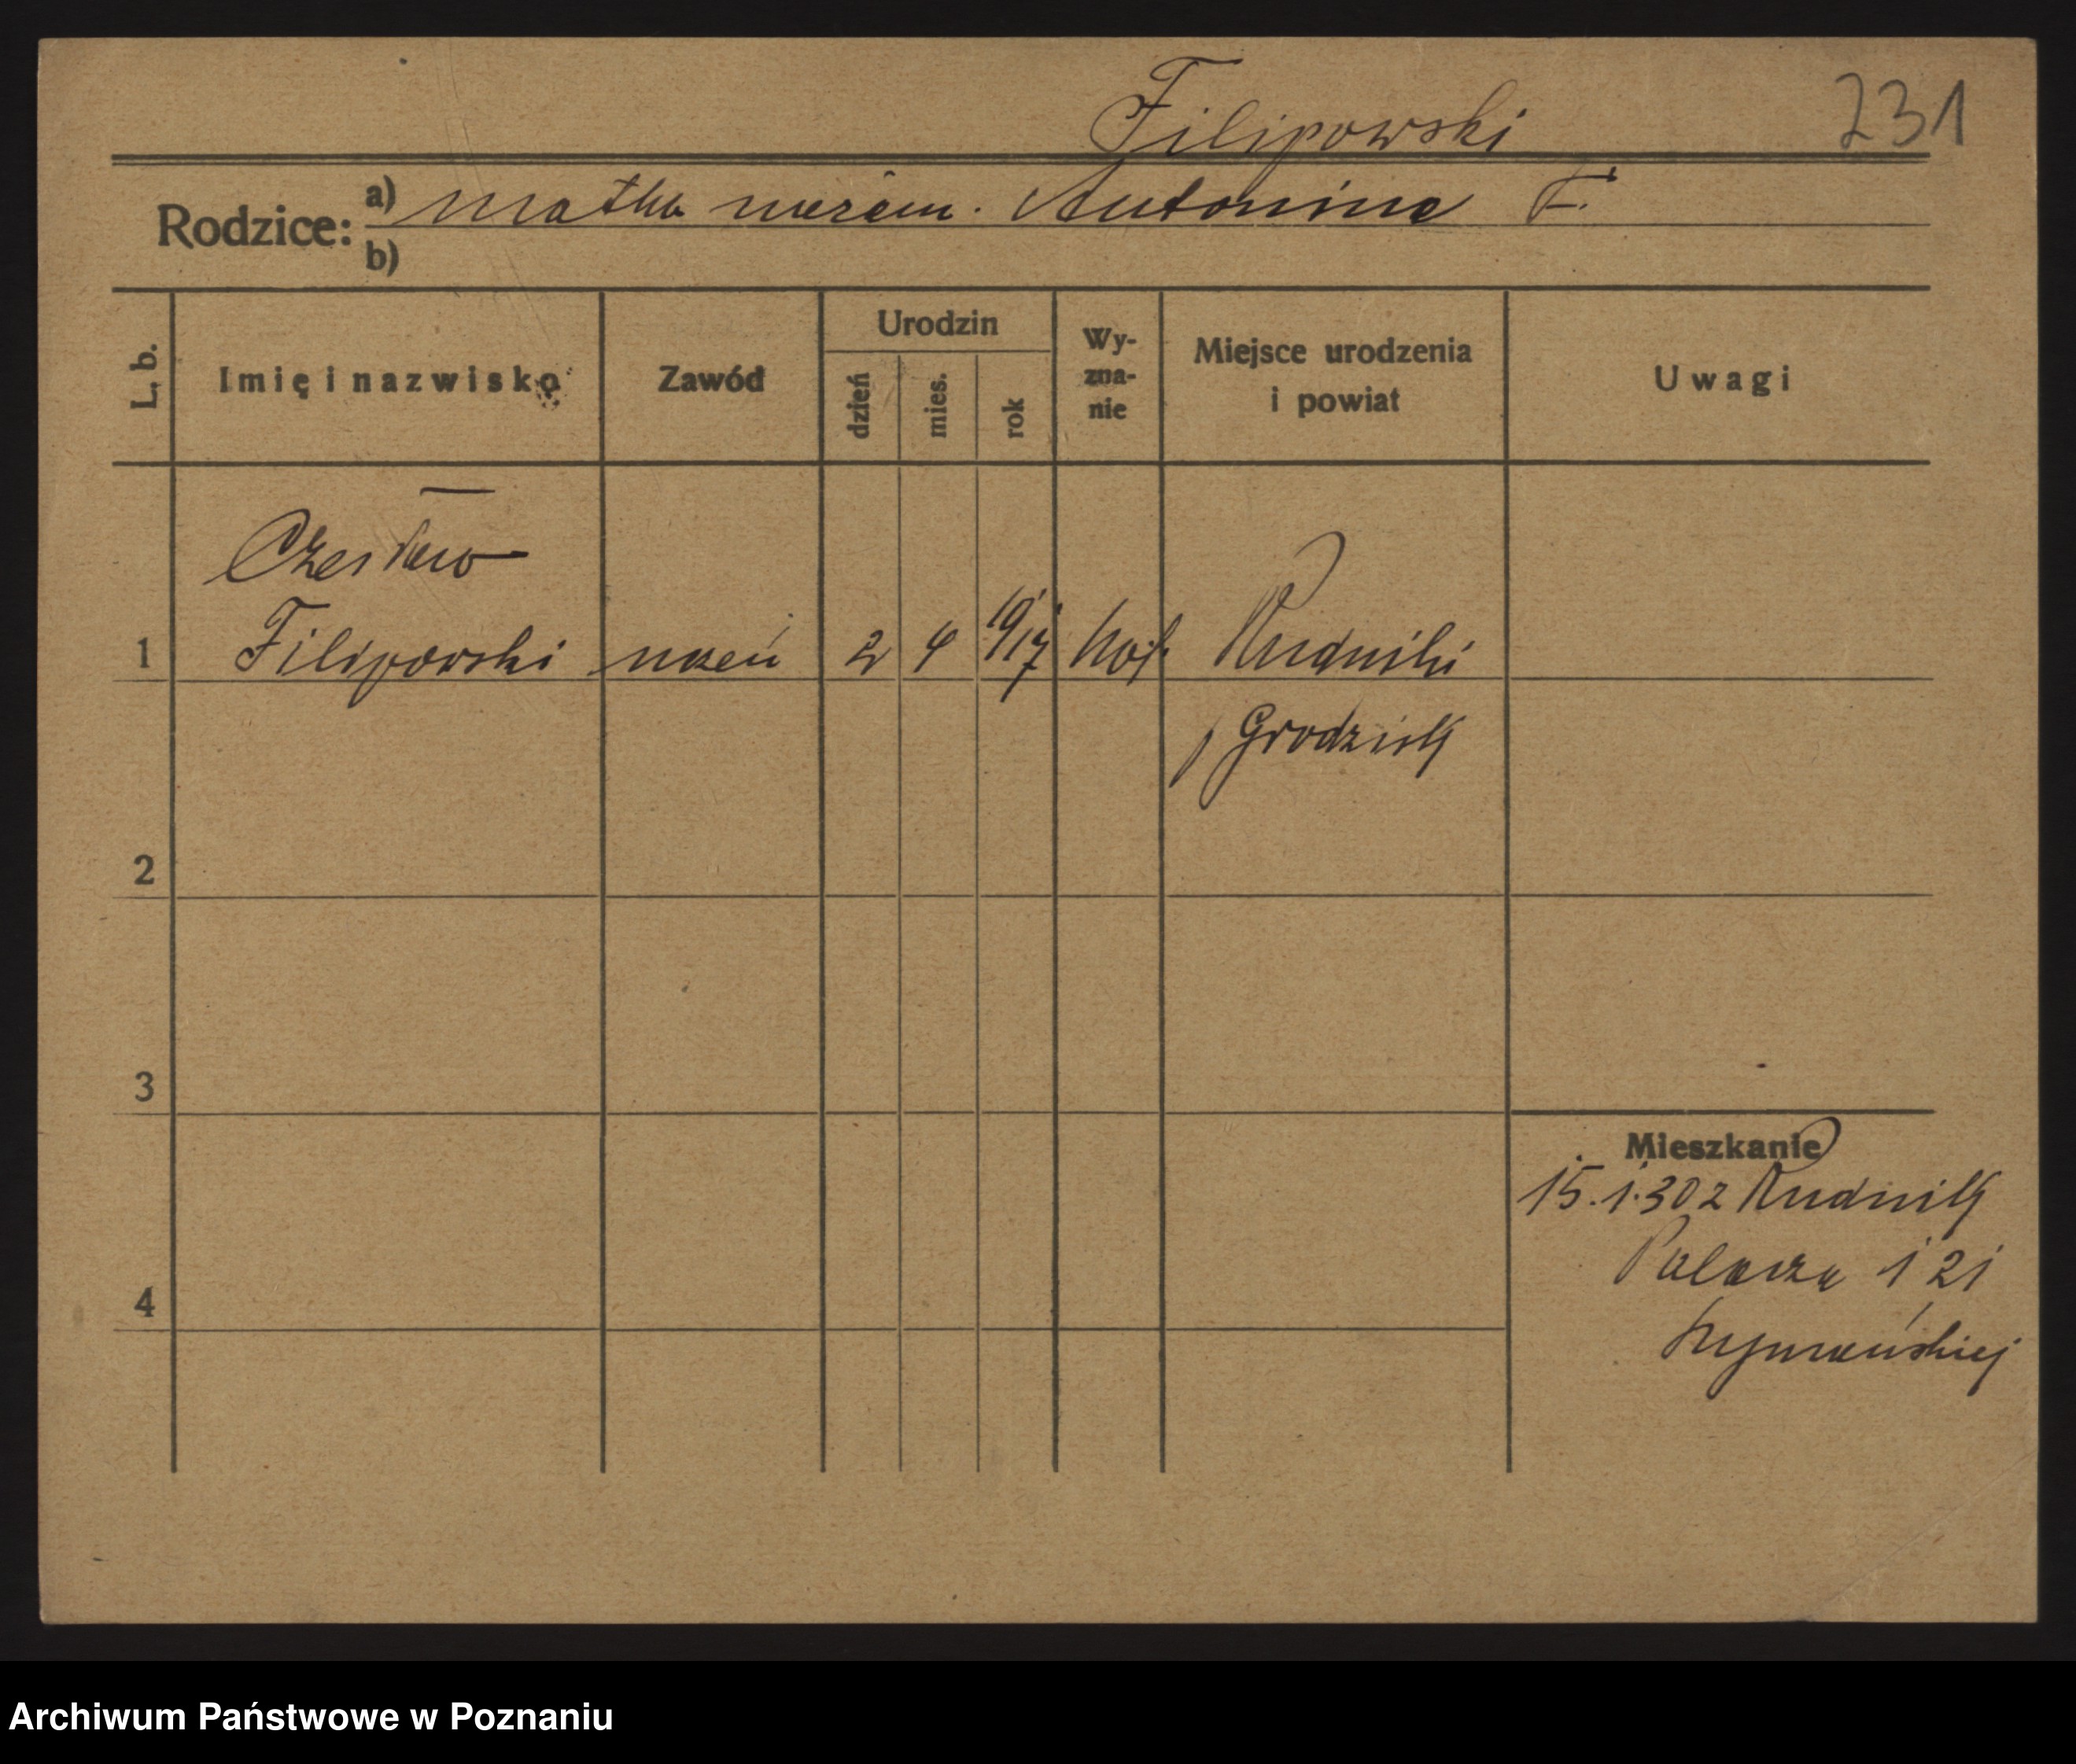 Filipowski
231
Rodzice:
a) matka niezam. Antonina F.
b)
L. b.
Imię i nazwisko
Zawód
Urodzin
dzień
mies.
rok
Wy-
zna-
nie
Miejsce urodzenia
i powiat
Uwagi
Czesław
1 Filipowski uczeń 2 4 1917 kat. Rudniki
p Grodzisk
2
3
4
Mieszkanie
15.1.30 z Rudnik
Palacza 121
Szymańskiej
Archiwum Państwowe w Poznaniu